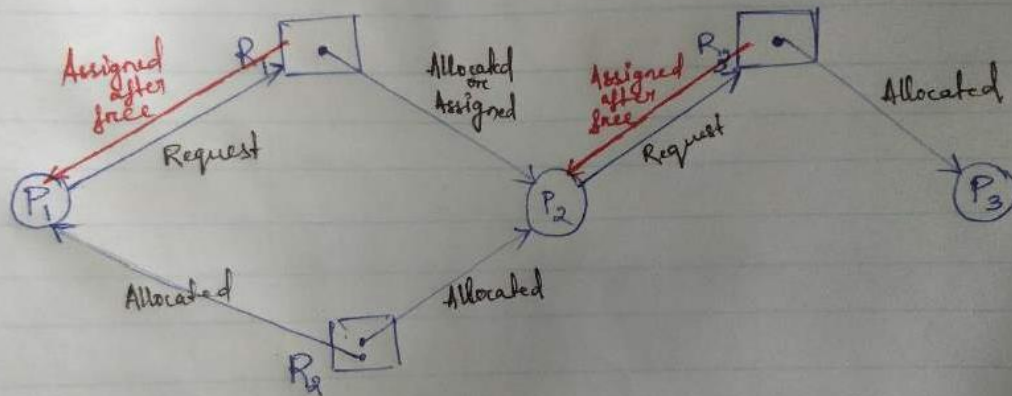 R1
R3
Assigned
after
free
Allocated
or
Assigned
Assigned
after
free
Allocated
Request
Request
P1
P2
P3
Allocated
Allocated
R2